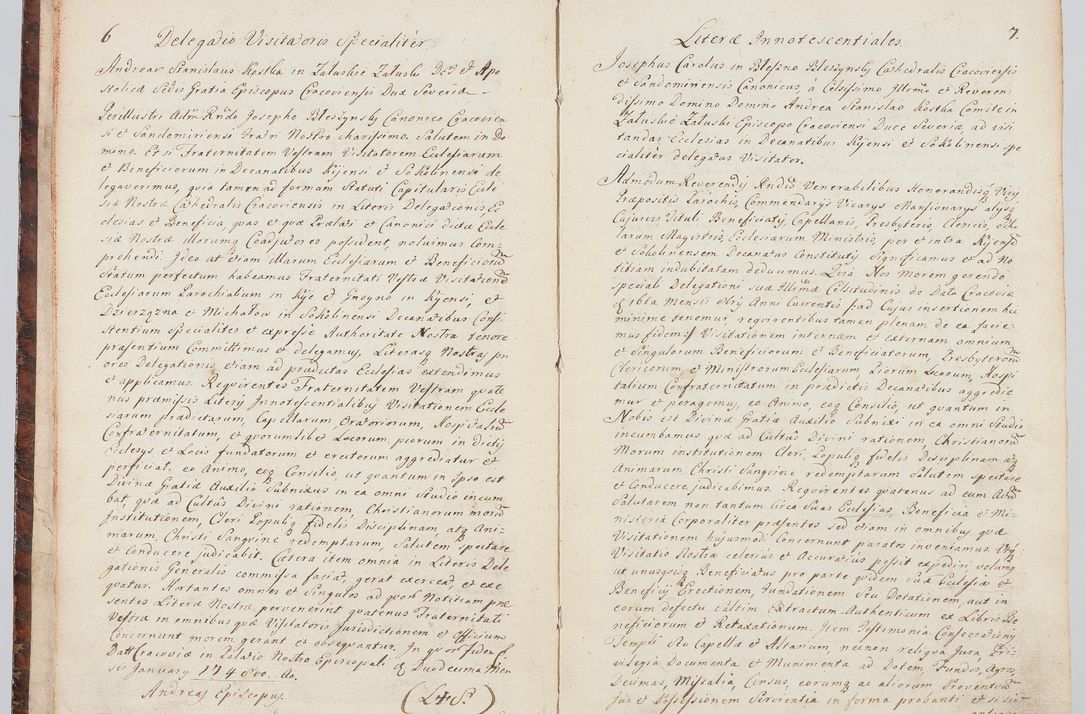 6 Delegatio Visitatoris Specialiter.
Andreas Stanislaus Kostka in Załuskie Załuski Dei & Apo
stolicæ Sedis Gratia Episcopus Cracoviensis Dux Severiæ
Perillustri Adm Rndo Josepho Bleszynsky Canonico Cracovien
si & Sandomiriensi Fratri Nostro charissimo. Salutem in Do
mino. Et si Fraternitatem Vestram Visitatorem Ecclesiarum
et Beneficiorum in Decanatibus Kijensi & Sokolinensi de
legaverimus, quia tamen ad formam Statuti Capitularis Eccle
siæ Nostræ Cathedralis Cracoviensis in Literis Delegationis Ec
clesias & Beneficia, quas et quæ Prælati & Canonici dictæ Eccle
siæ Nostræ illorumq Coadjutores possident, noluimus Com-
prehendi. Ideo ut etiam illarum Ecclesiarum & Beneficiorum
Statum perfectum habeamus Fraternitati Vestræ Visitationem
Ecclesiarum Parochialium in Kije & Gnoyno in Kijensi, &
Dzierzązna & Michałow in Sokolinensi Decanatibus Consi
stentium specialiter et expresse Authoritate Nostra tenore
præsentium Committimus & delegamus, Literasq Nostras pri
ores Delegationis etiam ad prædictas Ecclesias extendimus
et applicamus. Requirentes Fraternitatem Vestram quate
nus præmissis Literis Innotescentialibus Visitationem Eccle
siarum prædictarum, Capellarum, Oratoriorum, Hospitalium
Confraternitatum, et quorumlibet Locorum, piorum in dictis
Ecclesys et Locis fundatorum et erectorum aggrediatur et
perficiat, eo Animo, eoq Consilio, ut quantum in ipso est
Divinæ Gratiæ Auxilio Subnixus in ea omni studio incum
bat, quæ ad Cultus Divini rationem, Christianorum morum
Institutionem, Cleri Populiq fidelis Disciplinam, atq Ani-
marum, Christi Sanguine redemptarum, Salutem spectare
et conducere judicabit. Cætera item omnia in Literis Dele
gationis Generalis commissa faciat, gerat exerceat et exe
quatur. Hortantes omnes et singulos ad quos Notitiam præ
sentes Literæ Nostræ pervenerint quatenus Fraternitati
Vestræ in omnibus quæ Visitatoris Jurisdictionem et Officium
Concernunt morem gerant et obsequantur. In quor fidem
Datt Cracoviæ in Palatio Nostro Episcopali Duodecima Men
sis January 1748vo. do.
Andreas Episcopus. (L+S.)
Literæ Innotescentiales. 7.
Josephus Carolus in Bleszno Bleszynsky Cathedralis Cracoviensis
et Sandomiriensis Canonicus, à Celsissimo Illrmo et Reveren-
dissimo Domino Domino Andrea Stanislao Kostka Comite in
Załuskie Załuski Episcopo Cracoviensi Duce Severiæ, ad visi
tandas Ecclesias in Decanatibus Kijensi & Sokolinensi spe
cialiter delegatus Visitator.
Admodum Reverendis Rndis Venerabilibus Honorandisq Viris
Præpositis Parochis, Commendarys Vicarys Mansionarys alysq
Cujusvis tituli Beneficiatis, Capellanis, Presbyteris, Clericis, scho
larum Magistris, Ecclesiarum Ministris, per et intra Kijensem
et Sokolinensem Decanatus Constitutis significamus et ad No
titiam indubitatam deducimus. Quia Nos morem gerendo
speciali Delegationi suæ Illrmæ Celsitudinis de Data Cracoviæ
Mensis Anni Currentis sub Cujus insertionem
minime tenemur, requirentibus tamen plenam de ea facie
mus fidem Visitationem internam et externam omnium
et singulorum Beneficiorum & Beneficiatorum, Presbyterorum
Clericorum, et Ministrorum Ecclesiarum, Piorum Locorum, Hospi
talium Confraternitatum in prædictis Decanatibus aggredie
mur et peragemus, eo Animo, eoq Consilio, ut quantum in
Nobis est Divinæ Gratiæ Auxilio Subnixi in ea omni Studio
incumbamus quæ ad Cultus Divini rationem, Christianorum
Morum institutionem Cleri, Populiq fidelis Disciplinam atq
Animarum Christi Sanguine redemptarum Salutem spectare
et Conducere judicabimus. Requirentes quatenus ad eum
Salutarem non tantum circa Suas Ecclesias, Beneficia et Mi-
nisteria Corporaliter præsentes Sed etiam in omnibus quæ
Visitationem hujusmodi Concernunt paratos inveniamus.
Visitatio Nostra celerius et Accuratius possit expediri, volumus
ut unusquisq Beneficiatus pro parte quidem Suæ Ecclesiæ et
Beneficij Erectionem, Fundationem Seu Dotationem, aut in
eorum defectu saltim Extractum Authenticum ex Libris Be
neficiorum et Retaxationum. Item Testimonia Consecrationis
Templi seu Capellæ et Altarium, necnon reliqua Jura Pri
vilegia Documenta et Munimenta ad Dotem, Fundos, Agros
Decimas, Missalia, Census, eorumq ac aliorum Proventuum
Jus et Possessionem Servientia in forma probanti et si sint